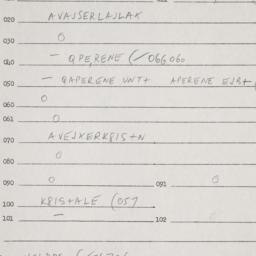 020 AVAJSERLAJLAK
030 O
040 — QPERENE (/066060
050 — QAPERENE VNT+ APERENE EJB+
060 O
061 O
070 AVEJXERK8IS+N
080 O
090 O 091 O
100 K8IS+ALE (057
101 — 102